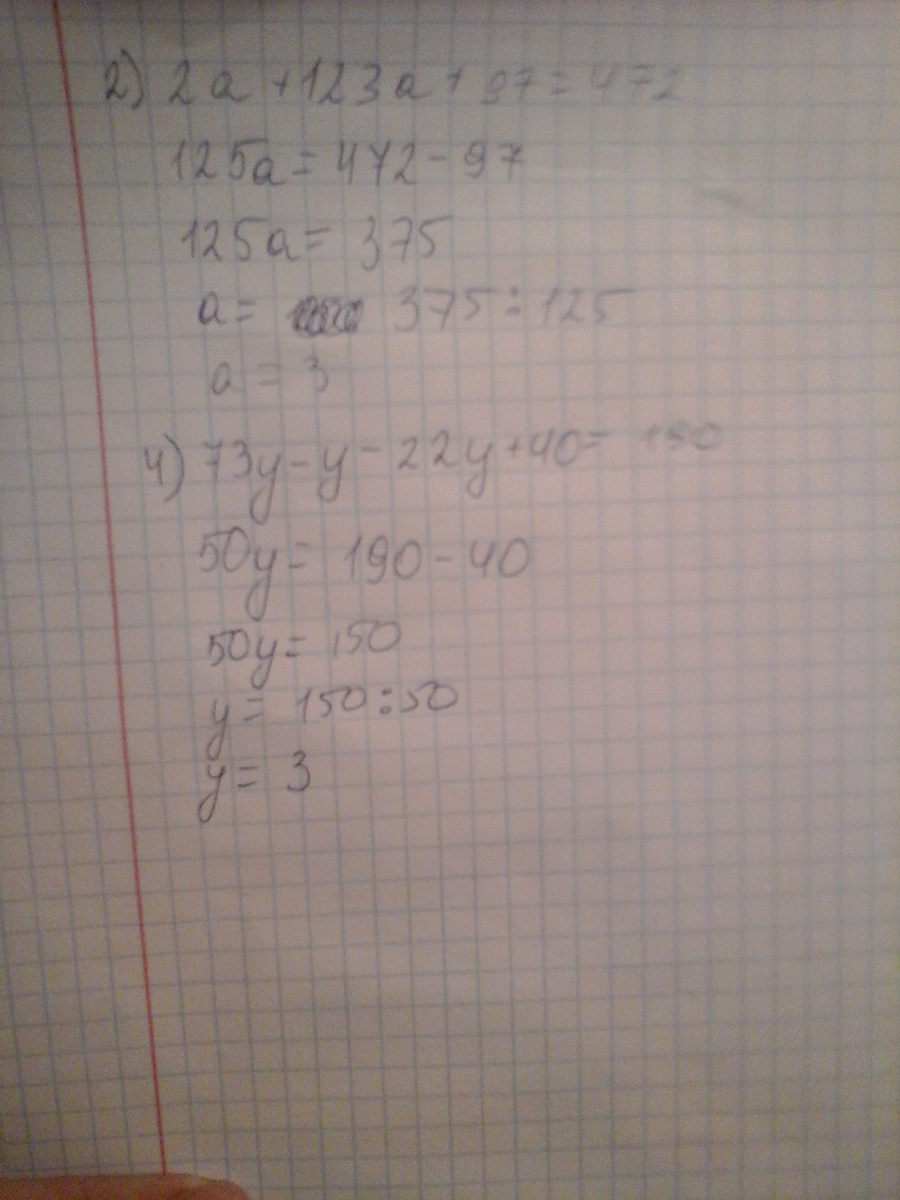 2) 2a + 123a + 97 = 472
125a = 472 - 97
125a = 375
a = 375 : 125
a = 3
4) 73y - y - 22y + 40 = 190
50y = 190 - 40
50y = 150
y = 150 : 50
y = 3